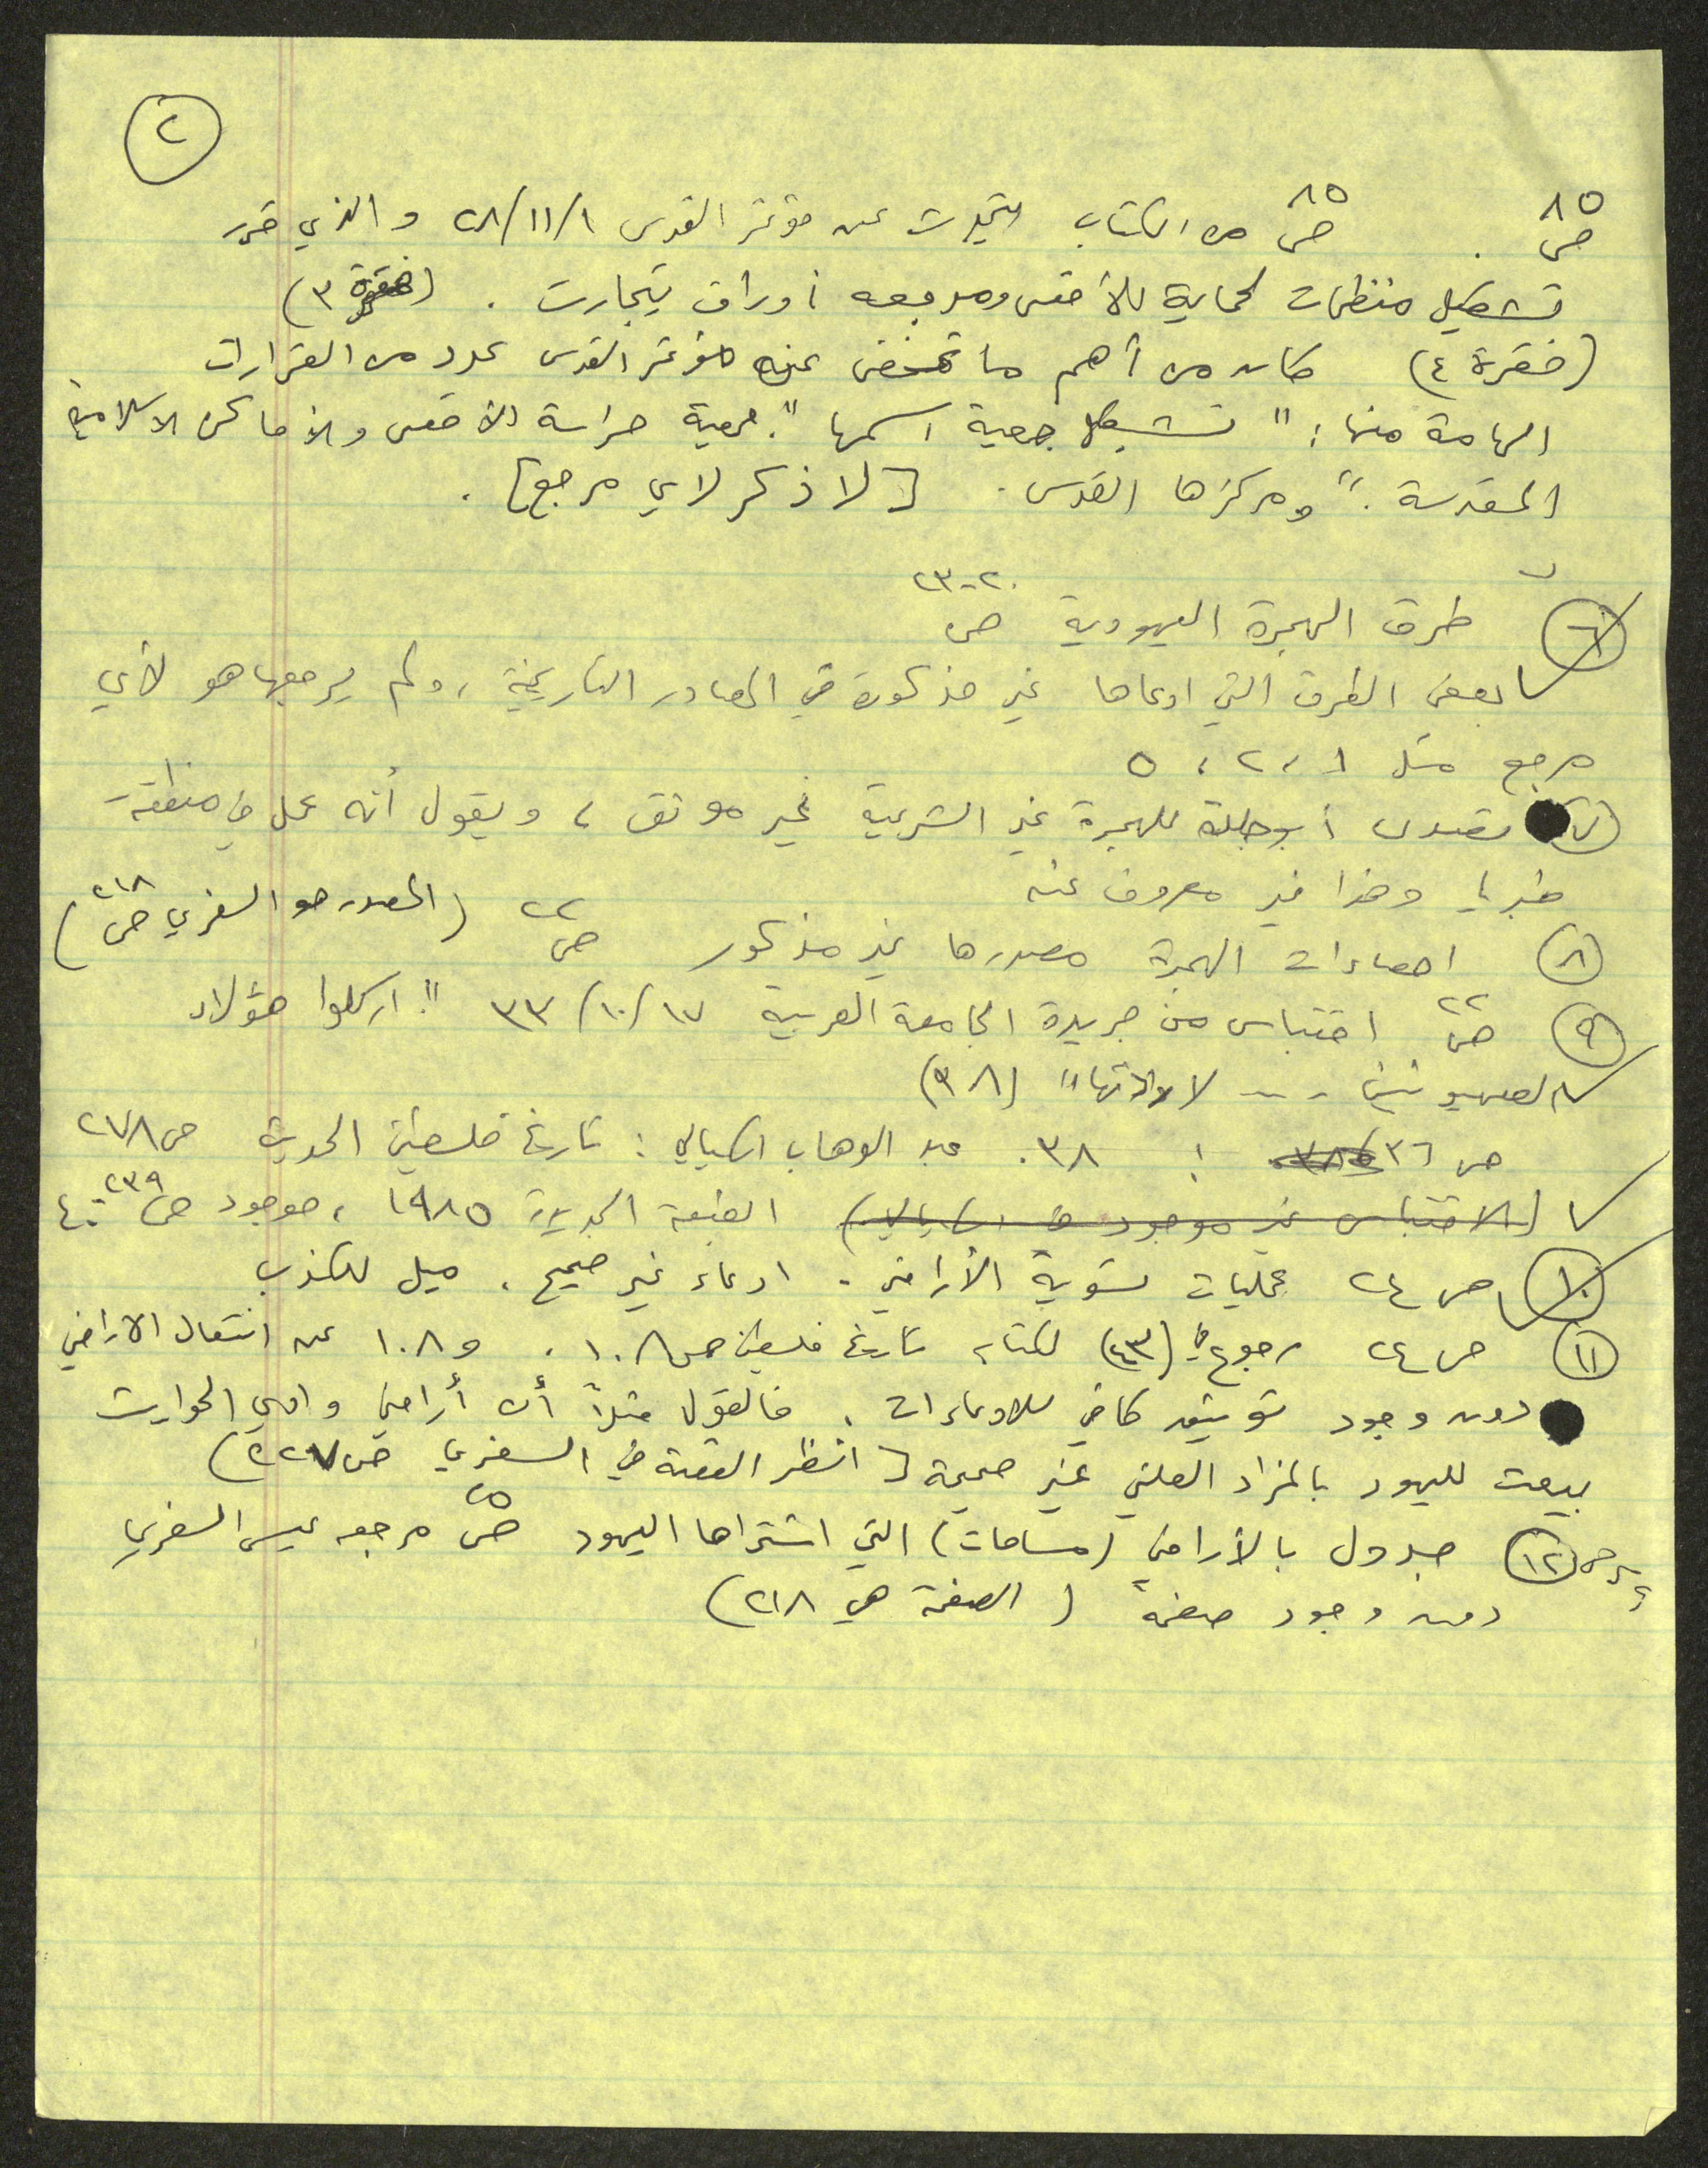 ٢
ص ٨٥ . ص ٨٥ من الكتاب يتحدث عن مؤتمر القدس ١/١١/٢٨ والذي قرر
تشكيل منظمات لحماية الأقصى ومرجعه أوراق تيجارت . (فقرة ٣)
(فقرة ٤) كان من أهم ما تمخض عنه مؤتمر القدس عدد من القرارات
الهامة منها : " تشكيل جمعية اسمها " جمعية حراسة الأقصى والأماكن الاسلامية
المقدسة " ومركزها القدس . [لا ذكر لاي مرجع] .
٦ طرق الهجرة اليهودية ص ٢٠-٢٣
بعض الطرق التي ادعاها غير مذكورة في المصادر التاريخية ، ولم يرجعها هو لأي
مرجع مثل ١ ، ٢ ، ٥
٧ تصدى أبو جلدة للهجرة غير الشرعية غير موثق ، ويقول أنه عمل في منطقة
طبريا وهذا غير معروف عنه
٨ احصاءات الهجرة مصدرها غير مذكور ص ٢٢ (المصدر هو السفري ص ٢١٨)
٩ ص ٢٢ اقتباس من جريدة الجامعة العربية ١٧/١٠/٣٣ " اركلوا هؤلاء
الصهيونيين ... لاوالاتها" (٣٨)
ص ٣٦ ! ٣٨. عبد الوهاب الكيالي : تاريخ فلسطين الحديث ص ٢٧٨
(الاقتباس غير موجود في الكيالي) الطبعة الجديدة ١٩٨٥ ، موجود ص ٢٣٩-٤٠
١٠ ص ٢٤ عمليات تسوية الأراضي . ادعاء غير صحيح . ميل للكذب
١١ ص ٢٤ رجوع في (٤٣) لكتاب تاريخ فلسطين ص ١٠٨ . و ١٠٨ عن انتقال الاراضي
دون وجود توثيق كافي للادعاءات . فالقول مثلاً أن أراضي وادي الحوارث
بيعت لليهود بالمزاد العلني غير صحيحة [انظر القصة في السفري ص ٢٢٧)
١٢ جدول بالأراضي (مساحات) التي اشتراها اليهود ص ٢٥ مرجعه عيسى السفري
دون وجود صفحة (الصفحة هي ٢١٨)